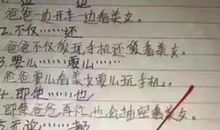 爸爸一边开车一边看美女。
2.不仅……还
爸爸不仅爱玩手机还爱看美女。
3.要么……要么……
爸爸要么看美女要么玩手机。
4.即使……也
即使爸爸再忙,也会抽空看美女。